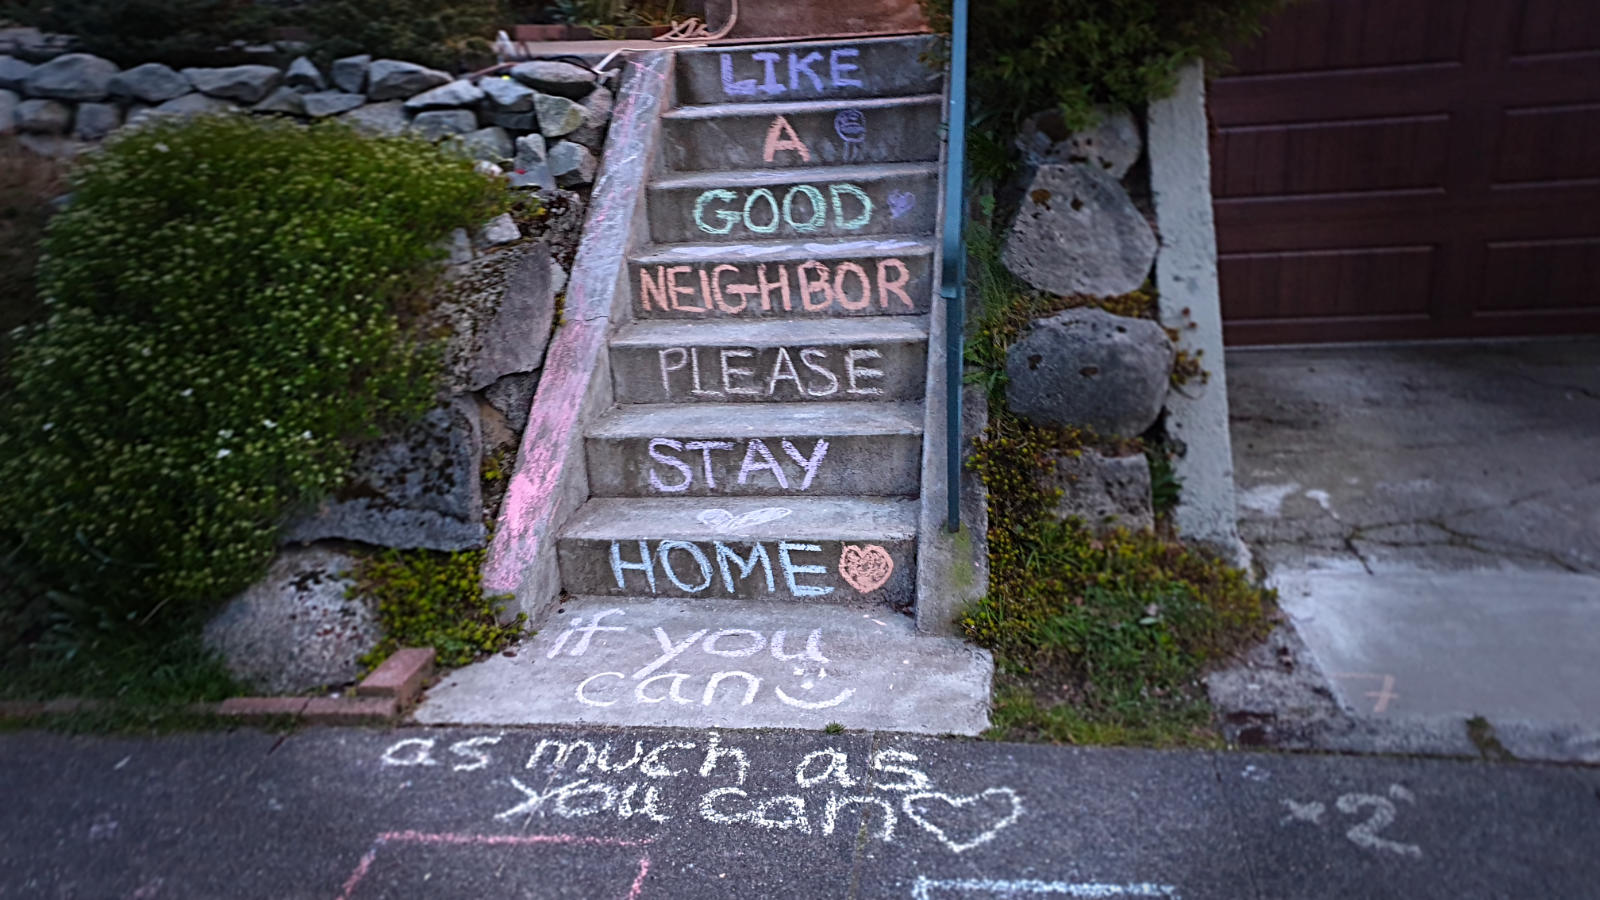 LIKE
A
GOOD
NEIGHBOR
PLEASE
STAY
HOME
if you
can
as much as
you can
7
+2